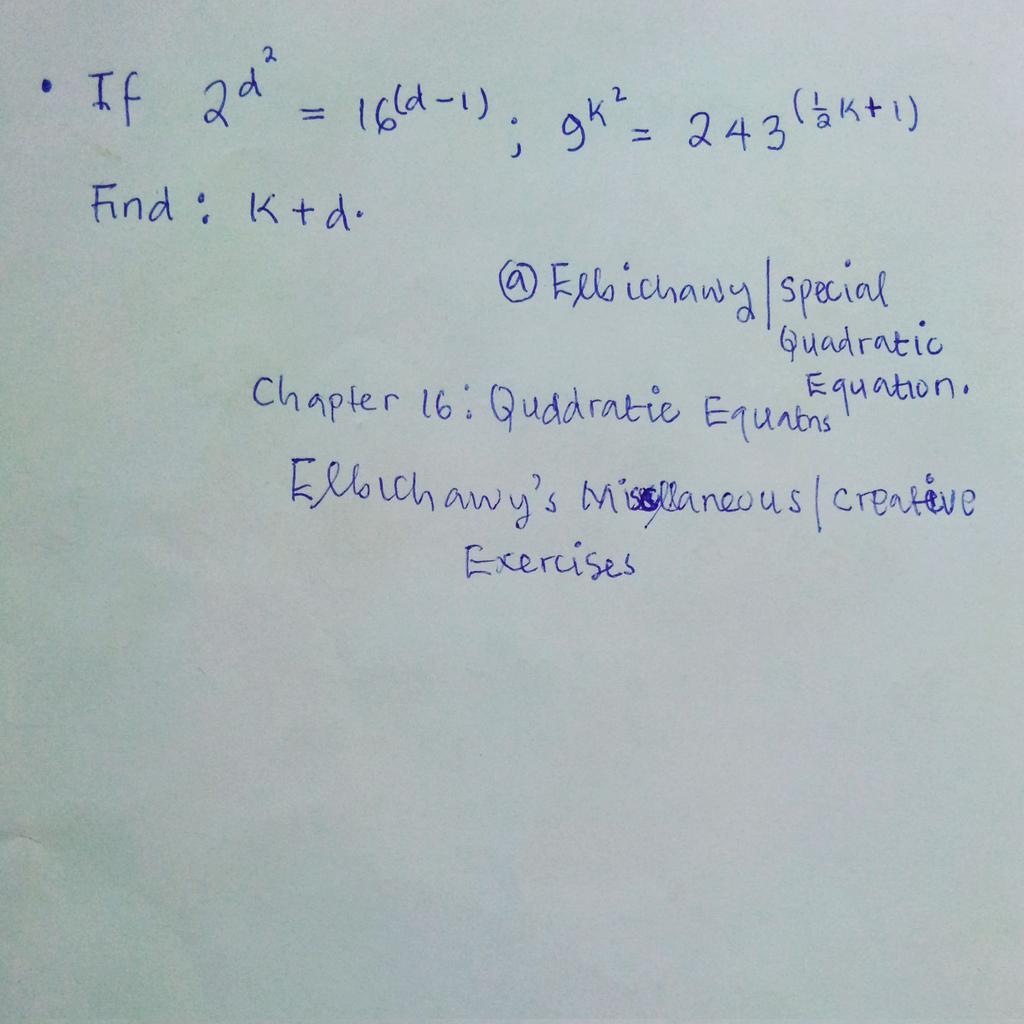 • If 2^d^2 = 16^(d-1) ; 9^k^2 = 243^(1/2 k+1)
Find : K + d.
@ Elbichawy | special
Quadratic
Equation.
Chapter 16 : Quddratic Equatns
Elbichawy's Miscellaneous / creative
Exercises